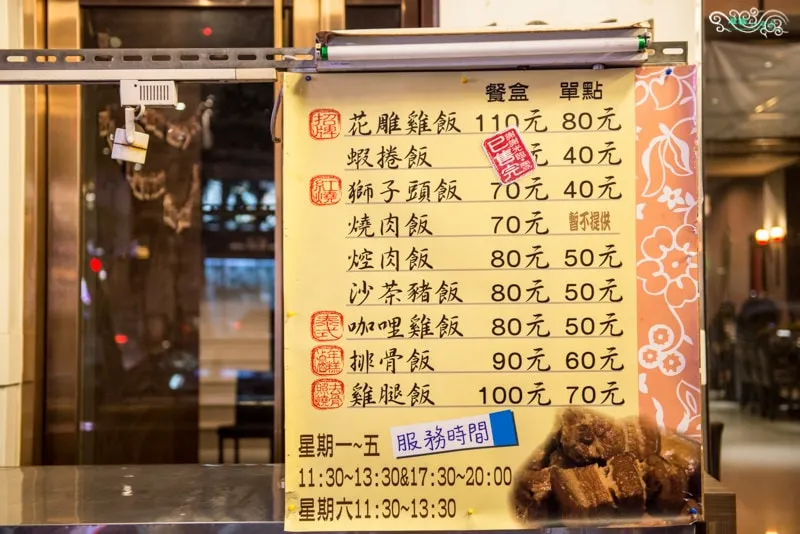 餐盒 單點
招牌 花雕雞飯 110元 80元
蝦捲飯 40元
謝謝光臨
已售完
紅燒 獅子頭飯 70元 40元
燒肉飯 70元 暫不提供
焢肉飯 80元 50元
沙茶豬飯 80元 50元
義式 咖哩雞飯 80元 50元
排骨飯 90元 60元
雞腿飯 100元 70元
星期一~五 服務時間
11:30~13:30&17:30~20:00
星期六11:30~13:30